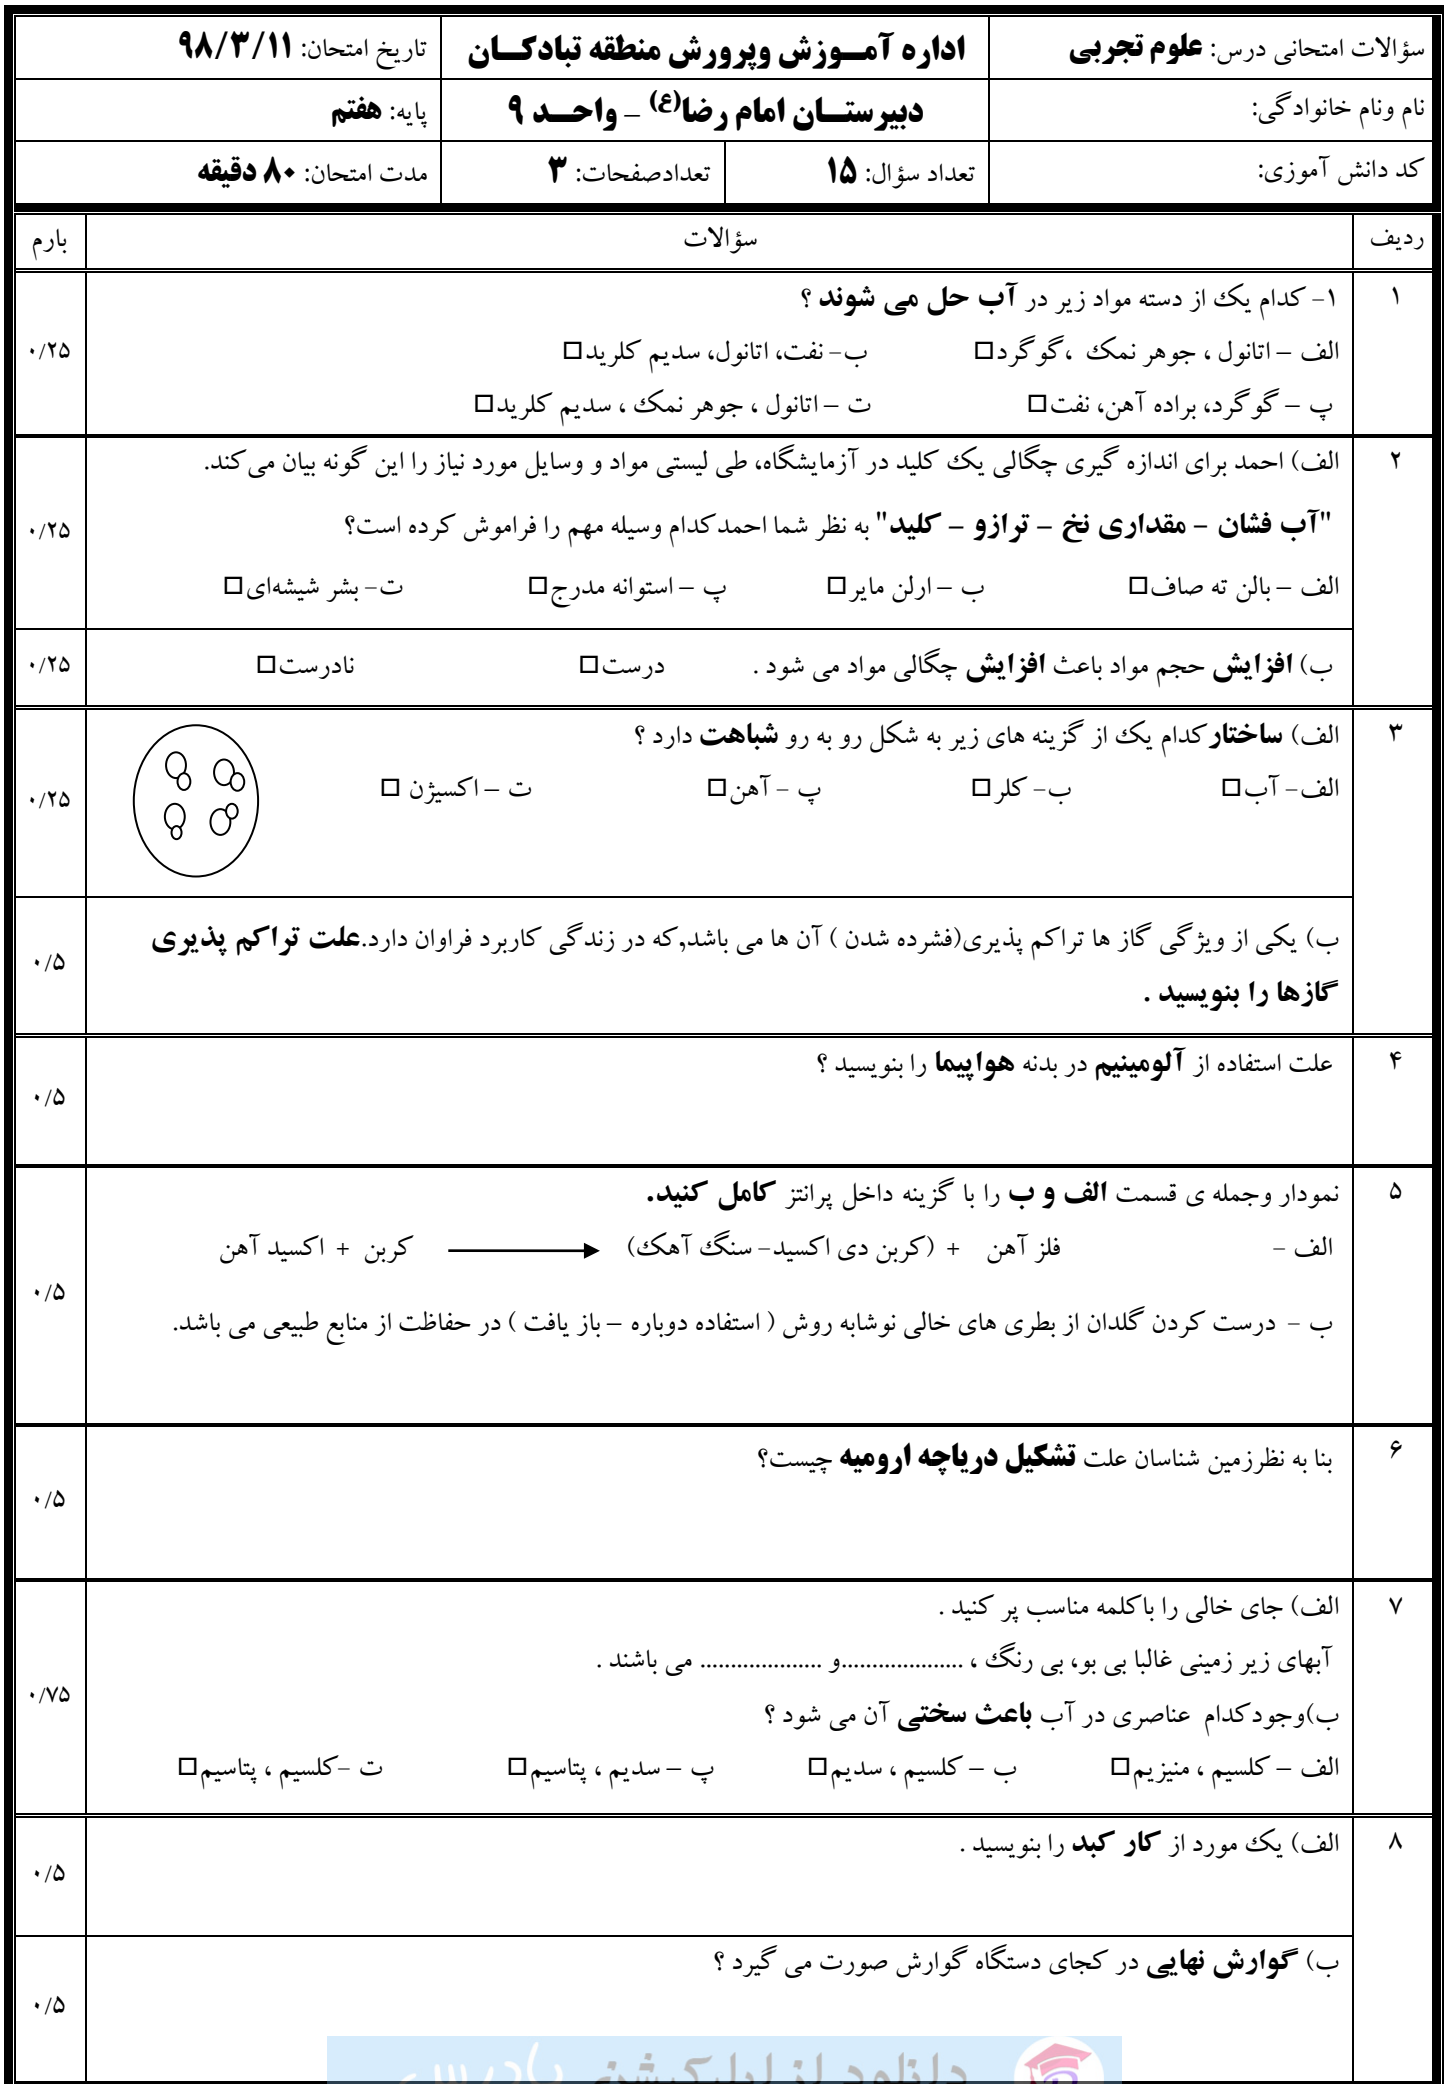 سؤالات امتحانی درس: علوم تجربی
اداره آمـــوزش وپرورش منطقه تبادکـــان
تاریخ امتحان: ۹۸/۳/۱۱
نام ونام خانوادگی:
دبیرستـــان امام رضا(ع) – واحـــد ۹
پایه: هفتم
کد دانش آموزی:
تعداد سؤال: ۱۵
تعدادصفحات: ۳
مدت امتحان: ۸۰ دقیقه
ردیف
سؤالات
بارم
۱
۱- کدام یک از دسته مواد زیر در آب حل می شوند ؟
الف – اتانول ، جوهر نمک ،گوگرد□ ب- نفت، اتانول، سدیم کلرید□
پ – گوگرد، براده آهن، نفت□ ت – اتانول ، جوهر نمک ، سدیم کلرید□
۰/۲۵
۲
الف) احمد برای اندازه گیری چگالی یک کلید در آزمایشگاه، طی لیستی مواد و وسایل مورد نیاز را این گونه بیان می‌کند.
"آب فشان – مقداری نخ – ترازو – کلید" به نظر شما احمدکدام وسیله مهم را فراموش کرده است؟
الف – بالن ته صاف□ ب – ارلن مایر□ پ – استوانه مدرج□ ت- بشر شیشه‌ای□
۰/۲۵
ب) افزایش حجم مواد باعث افزایش چگالی مواد می شود . درست□ نادرست□
۰/۲۵
۳
الف) ساختارکدام یک از گزینه های زیر به شکل رو به رو شباهت دارد ؟
الف- آب□ ب- کلر□ پ - آهن□ ت – اکسیژن □
۰/۲۵
ب) یکی از ویژگی گاز ها تراکم پذیری(فشرده شدن ) آن ها می باشد,که در زندگی کاربرد فراوان دارد.علت تراکم پذیری
گازها را بنویسید .
۰/۵
۴
علت استفاده از آلومینیم در بدنه هواپیما را بنویسید ؟
۰/۵
۵
نمودار وجمله ی قسمت الف و ب را با گزینه داخل پرانتز کامل کنید.
الف - فلز آهن + (کربن دی اکسید- سنگ آهک) ⟶ کربن + اکسید آهن
ب - درست کردن گلدان از بطری های خالی نوشابه روش ( استفاده دوباره – باز یافت ) در حفاظت از منابع طبیعی می باشد.
۰/۵
۶
بنا به نظرزمین شناسان علت تشکیل دریاچه ارومیه چیست؟
۰/۵
۷
الف) جای خالی را باکلمه مناسب پر کنید .
آبهای زیر زمینی غالبا بی بو، بی رنگ ، ....................و .................... می باشند .
ب)وجودکدام عناصری در آب باعث سختی آن می شود ؟
الف – کلسیم ، منیزیم□ ب – کلسیم ، سدیم□ پ – سدیم ، پتاسیم□ ت -کلسیم ، پتاسیم□
۰/۷۵
۸
الف) یک مورد از کار کبد را بنویسید .
۰/۵
ب) گوارش نهایی در کجای دستگاه گوارش صورت می گیرد ؟
۰/۵
دانلود از اپلیکیشن پادرس